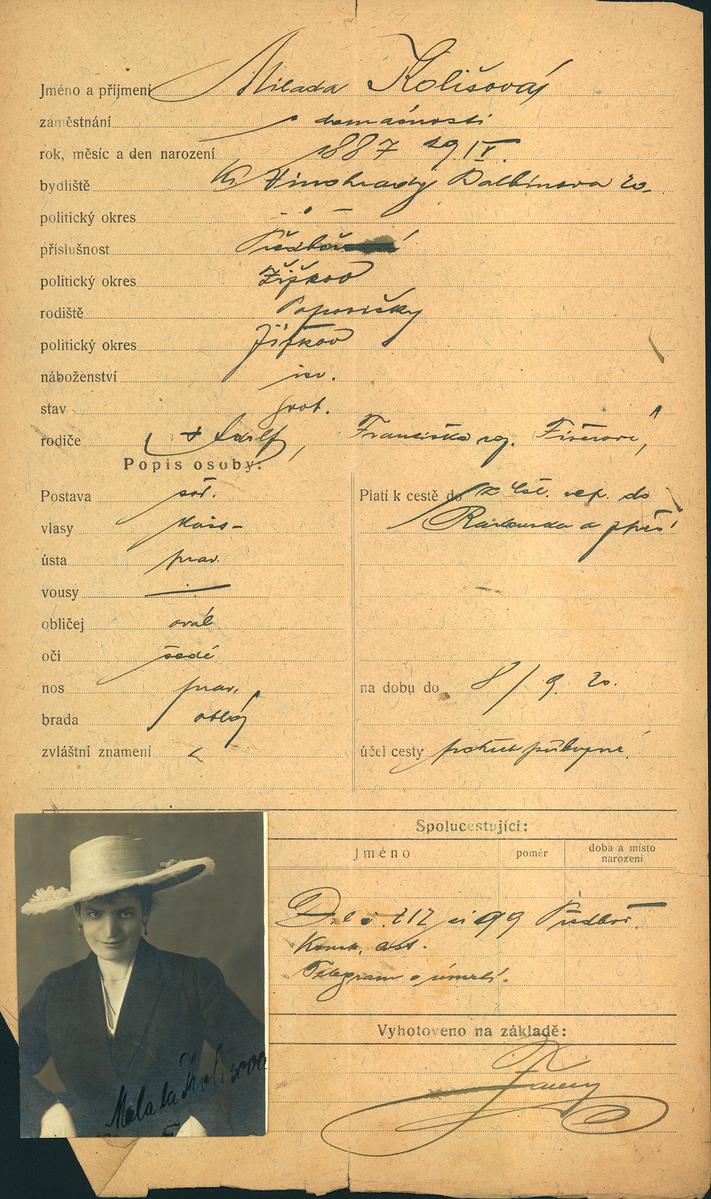 Jméno a příjmení Milada Kolišová
zaměstnání v domácnosti
rok, měsíc a den narození 1887 29 IV.
bydliště Kr. Vinohrady Balbínova 20.
politický okres - " -
příslušnost Předboř
politický okres Žižkov
rodiště Popovičky
politický okres Žižkov
náboženství isr.
stav svob.
rodiče † Adolf, Františka roz. Fišerová,
Popis osoby:
Postava stř.
vlasy
ústa prav.
vousy —
obličej ovál
oči šedé
nos prav.
brada oblá
zvláštní znamení
Platí k cestě do z čsl. rep. do
Rakouska a zpět
na dobu do 8/9. 20.
účel cesty pohřeb
Spolucestující:
Jméno
poměr
doba a místo
narození
D. l. č. 99 Předboř.
Telegram o úmrtí.
Vyhotoveno na základě:
Milada Kolišová